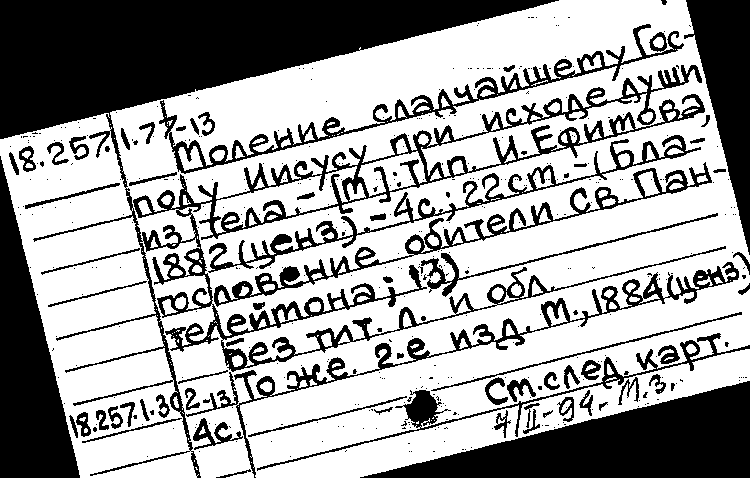 18.257.1.77-13 Моление сладчайшему Гос-
поду Иисусу при исходе души
из тела.-[М.]: Тип. И. Ефимова,
1882 (ценз.).-4с.; 22 см.-(Бла-
гословение обители Св. Пан-
телеймона; 13).
Без тит. л. и обл.
То же. 2-е изд. М., 1884 (ценз.)
18.257.1.302-13 4с.
См. след. карт.
7/II-94-М.З.